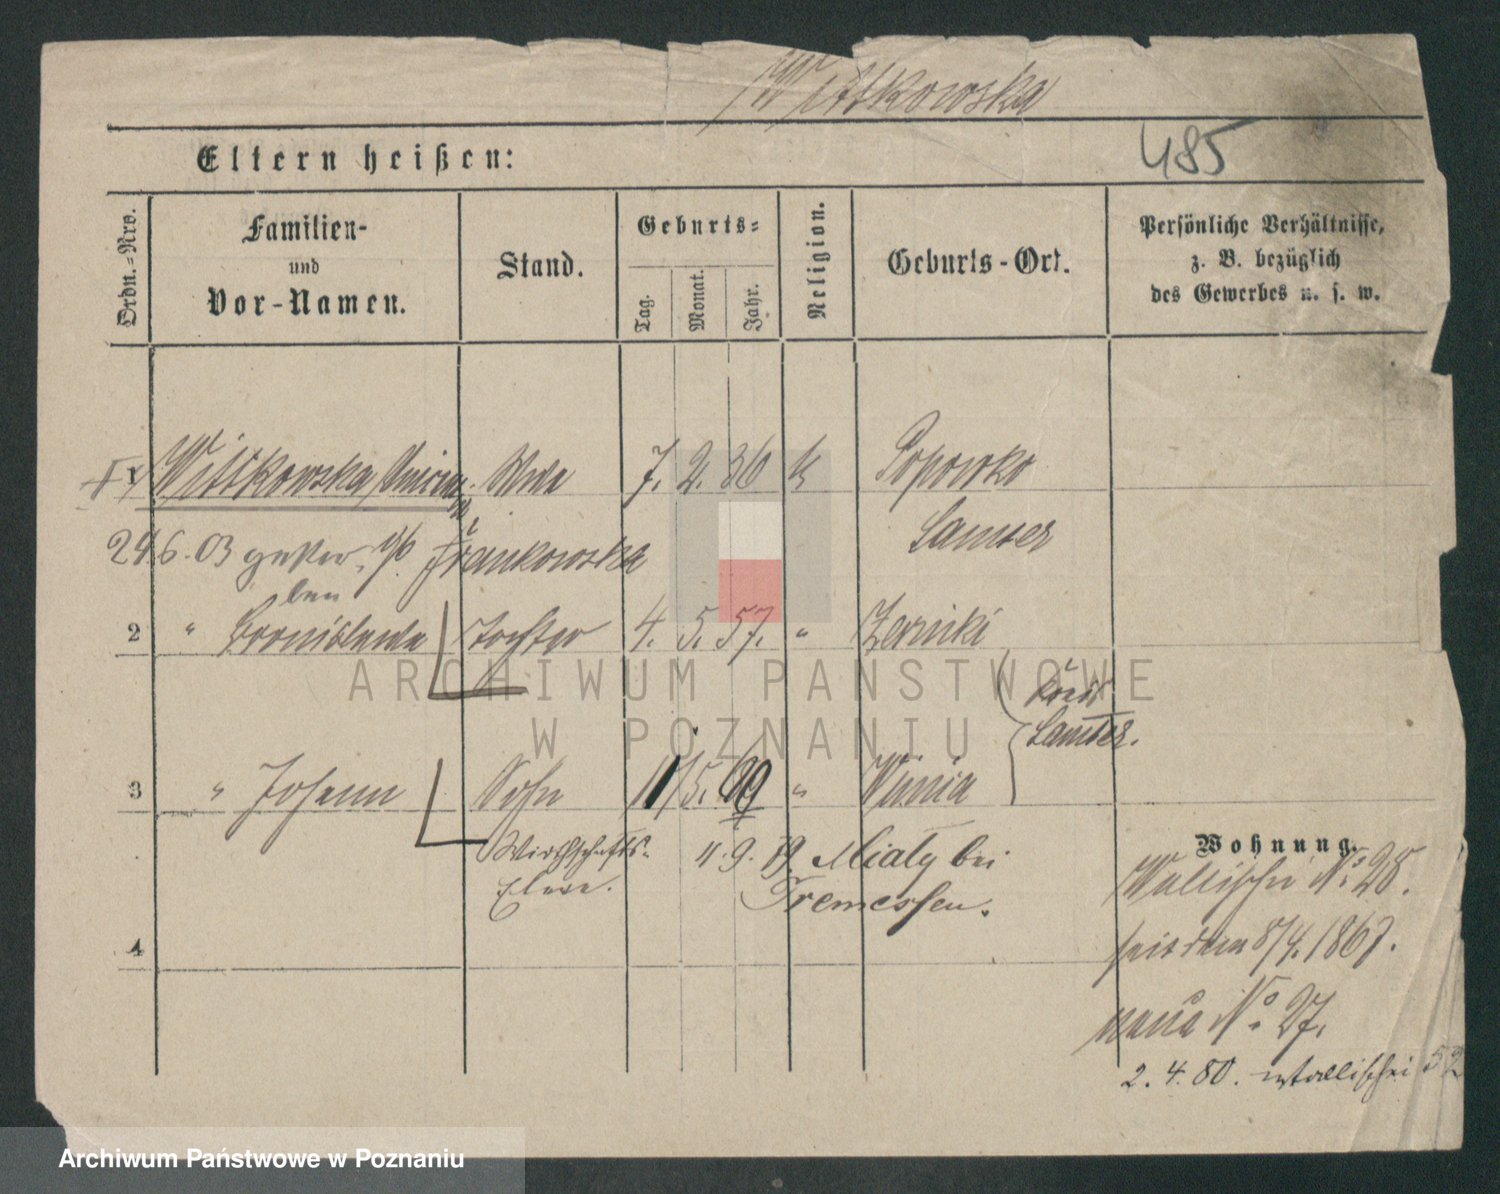 Wittkowska
485
Eltern heißen:
Ordn.-Nro.
Familien-
und
Vor-Namen.
Stand.
Geburts-
Tag.
Monat.
Jahr.
Religion.
Geburts-Ort.
Persönliche Verhältnisse,
z. B. bezüglich
des Gewerbes u. s. w.
1 Wittkowska Wwe 7. 2. 36 k Popowko
Samter
24.6.03 gestor-
ben
Frankowska
2 " Bronislawa Tochter 4. 5. 57. " Zerniki
Kreis
Samter.
3 " Johann Sohn 11 5. 69 " Winia
Wirthschafts-
Eleve.
11.9.79. Mialy bei
Tremessen.
Wohnung.
Wallischei No. 28.
seit dem 8/4. 1867.
neue No. 27.
4
2.4.80. Wallischei 52
ARCHIWUM PAŃSTWOWE
W POZNANIU
Archiwum Państwowe w Poznaniu